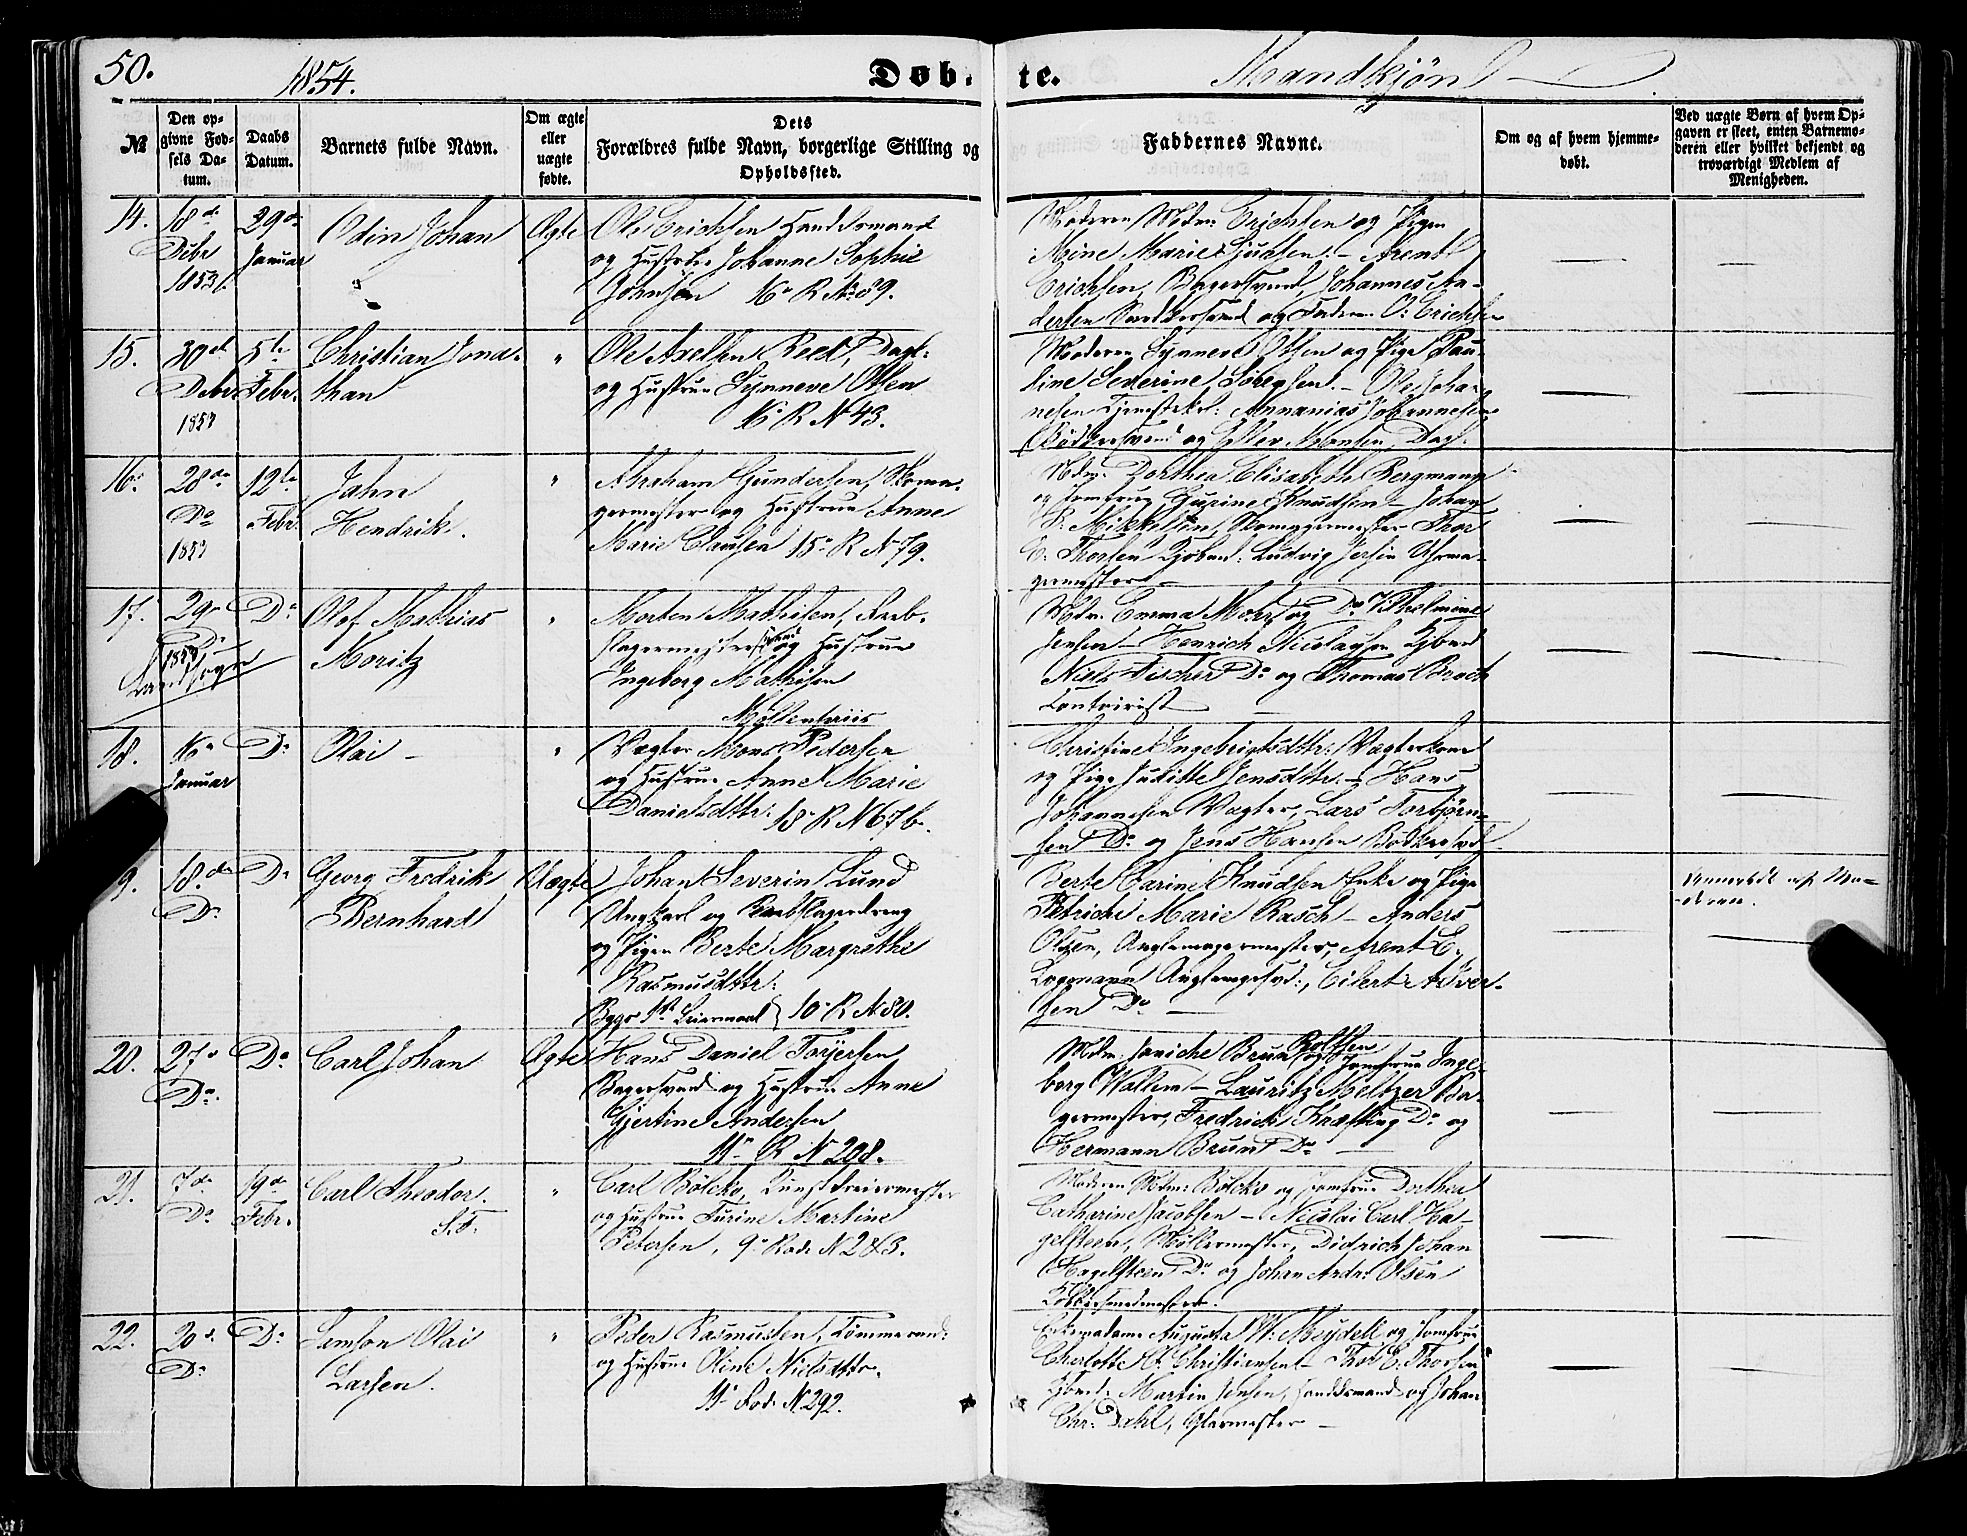 50.
1854.
Døb-
te.
Mandkjøn
№
Den op-
givne Fød-
sels Da-
tum.
Daabs
Datum.
Barnets fulde Navn.
Om ægte
eller
uægte
fødte.
Dets
Forældres fulde Navn, borgerlige Stilling og
Opholdssted.
Faddernes Navne.
Om og af hvem hjemme-
døbt.
Ved uægte Børn af hvem Op-
gaven er skeet, enten Barnemo-
deren eller hvilket bekjendt og
troværdigt Medlem af
Menigheden.
14.
18de
Debr
1853
29de
Januar
Odin Johan
Ægte
Ole Erichsen Handelsmand
og Hustrue Johanne Sophie
Johnsen 16 R № 89.
Moderen Mdm: Erichsen og Pigen
Mine Marie - Arent
Erichsen, Bagersvend, Johannes An-
dersen og Faderen O: Erichsen
15.
30te
Debr
1853
5te
Febr.
Christian Jona-
than
"
Ole Axelsen Dagk:
og Hustrue Synneve Olsen
16 R № 43.
Moderen Synneve Olsen og Pige Pau-
line Severine Sørensen. - Ole Johan-
nesen Tjenestekrl: Annanias Johannesen
Bødkersvend og Dagk.
16.
28de
Do
1853
12te
Febr.
Jahn
Hendrik.
"
Abraham Gundersen, Skoma-
germester og Hustrue Anne
Marie Clausen 15 R № 79.
Mdm: Dorthea Elisabeth Bergmann
og Jomfrue Gurine Knudsen - Johan
P. Mikkelsen, Skomagermester Thor
E. Thorsen Kjøbmd: Ludvig Jersin Uhrma-
germester -
17.
29
Do
1853
Landsogn
Do
Olof Mathias
Moritz
"
Morten Mathisen, Reeb-
slagermestersvend og Hustrue
Ingeborg Mathisen
Møllendriis
Mdm: Emma Mohr og Do Vilhelmine
Jensen - Henrich Nicolaysen Kjbmd
Niels Fischer Do og Thomas Broch
Contoirist
18.
16
Januar
Do
Olai -
"
Vægter Mons Pedersen
og Hustrue Anne Marie
Danielsdttr: 18 R № 67 b.
Christine Ingebrigtsdttr: Vægterkone
og Pige Juditte Jensdttr: - Hans
Johannesen Vægter, Lars Torbjørn-
sen Do og Jens Hansen Bødkersvd
19.
18de
Do
Do
Georg Fredrik
Bernhard
Uægte
Johan Severin Lund
Ungkarl og Reebslagerdreng
og Pigen Berte Margrethe
Rasmusdttr:
Begges 1st Leiermaal 10 R № 80.
Berte Carine Knudsen Enke og Pige
Petriche Marie Rasch - Anders
Olsen, Anglemagermester, Arent E.
Logmann Anglemagersvd:, Eilert A Iver-
sen Do -
Anmeldt af Mo-
deren.
20.
27
Do
Do
Carl Johan
Ægte
Hans Daniel Torjersen
Bagersvend og Hustrue Anne
Gjertine Andersen
11 R № 208.
Mdm: Janiche Brun Roltsen og Jomfrue Inge-
borg Wallem - Lauritz Meltzer Ba-
germester, Fredrich Kræfting Do og
Hermann Brun Do -
21.
7de
Do
19de
Febr.
Carl Theodor.
S.F.
"
Carl Bölcko, Kunstdreiermester
og Hustrue Turine Martine
Petersen, 9 Rode № 283.
Moderen Mdm: Bölcko og Jomfrue Dorthea
Catherine Jacobsen - Nicolai Carl Ha-
gelsteen, Møllermester, Didrich Johan
Hagelsteen Do og Johan Andr: Olsen
Kobbersmedmester.
22.
20
Do
Do
Samson Olai
Larsen.
"
Peder Rasmussen, Tømmermd:
og Hustrue Oline Nielsdttr.
11 Rode № 292.
Enkemadame Augusta W. Meydell og Jomfrue
Charlotte C. Christiansen - Thor E. Thorsen
Kjbmd: Martin Jensen, Handelsmand og Johan
Chr: Dahl, Glarmester -